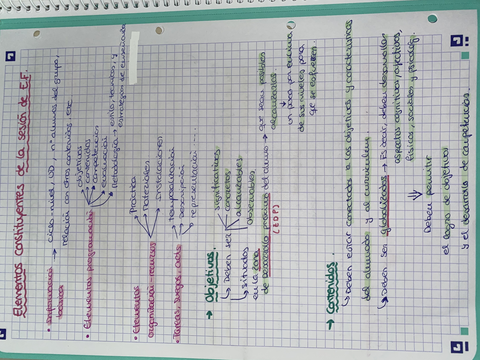 Elementos constituyentes de la sesión de E.F.
• Información básica → ciclo, nivel, UD, nº alumnos del grupo, relación con otros contenidos, etc
• Elementos programación → objetivos
contenidos
competencias
evaluación
metodología → estilo, técnica, y estrategia de enseñanza
• Elementos organización-recursos
Materiales
Instalaciones
• Tareas, juegos, actv.
temporalización
descripción
representación
→ Objetivos.
↳ Deben ser
significativos
concretos
alcanzables
observables
↳ situados en la zona de desarrollo próximo del alumno → que sean posibles alcanzarlos
(ZDP)
un poco por encima de sus niveles para que se esfuercen.
→ Contenidos
↳ Deben estar conectados a los objetivos y características del alumnado y al currículum
↳ Deben ser globalizados → Es decir, deben desarrollar aspectos cognitivos, afectivos, físicos, sociales y psicológ.
Deben permitir
el logro de objetivos
y el desarrollo de competencias.